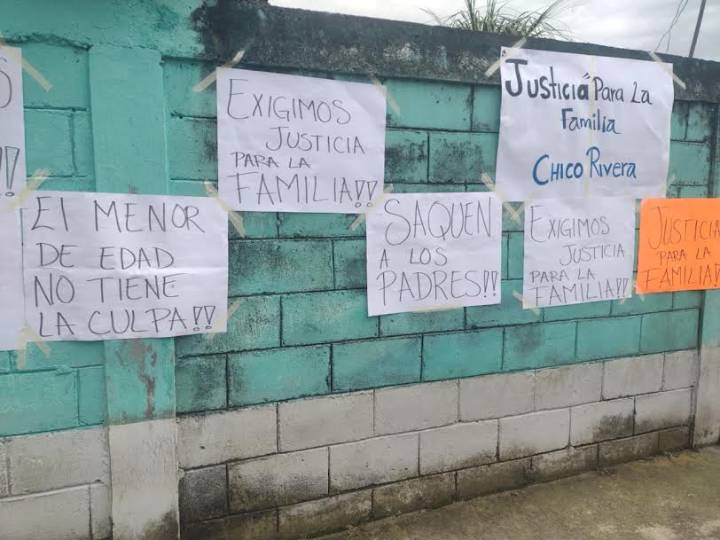 S
!!
EXIGIMOS
JUSTICIA
PARA LA
FAMILIA!!
JUSTICIA PARA LA
FAMILIA
CHICO RIVERA
El MENOR
DE EDAD
NO TIENE
LA CULPA!!
SAQUEN
A LOS
PADRES!!
EXIGIMOS
JUSTICIA
PARA LA
FAMILIA!!
JUSTICIA
PARA LA
FAMILIA